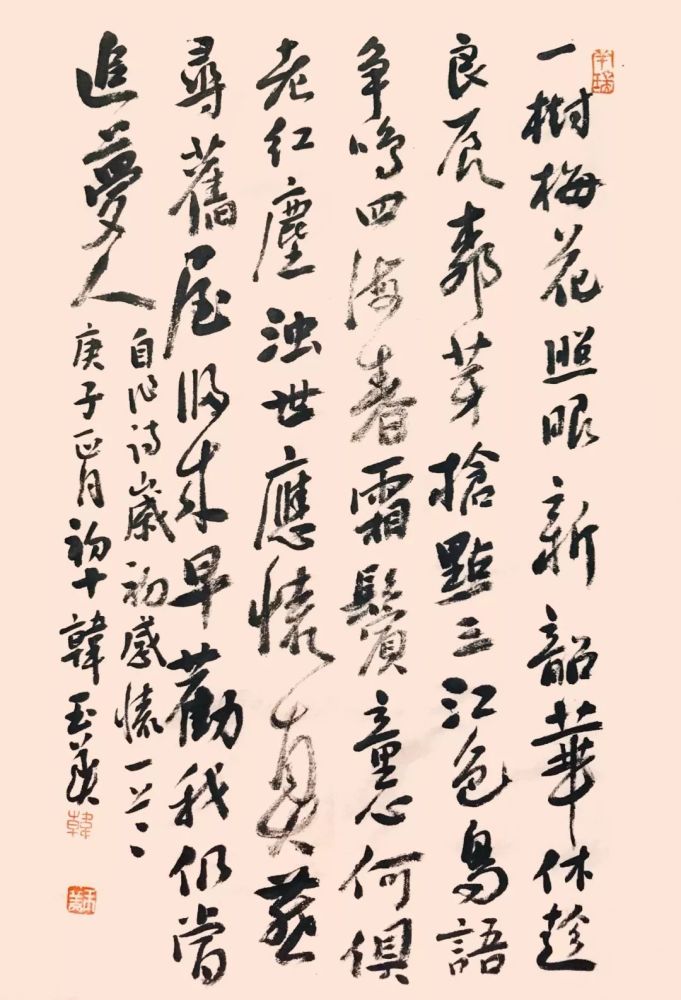 一樹梅花照眼新韶華休趁
良辰芽搶點三江色鳥語
爭鳴四海春霜鬢童心何俱
老紅塵濁世應懷真燕
尋舊屋歸來早勸我仍當
追夢人
自作詩歲初感懷一首
庚子正月初十韓玉
韓